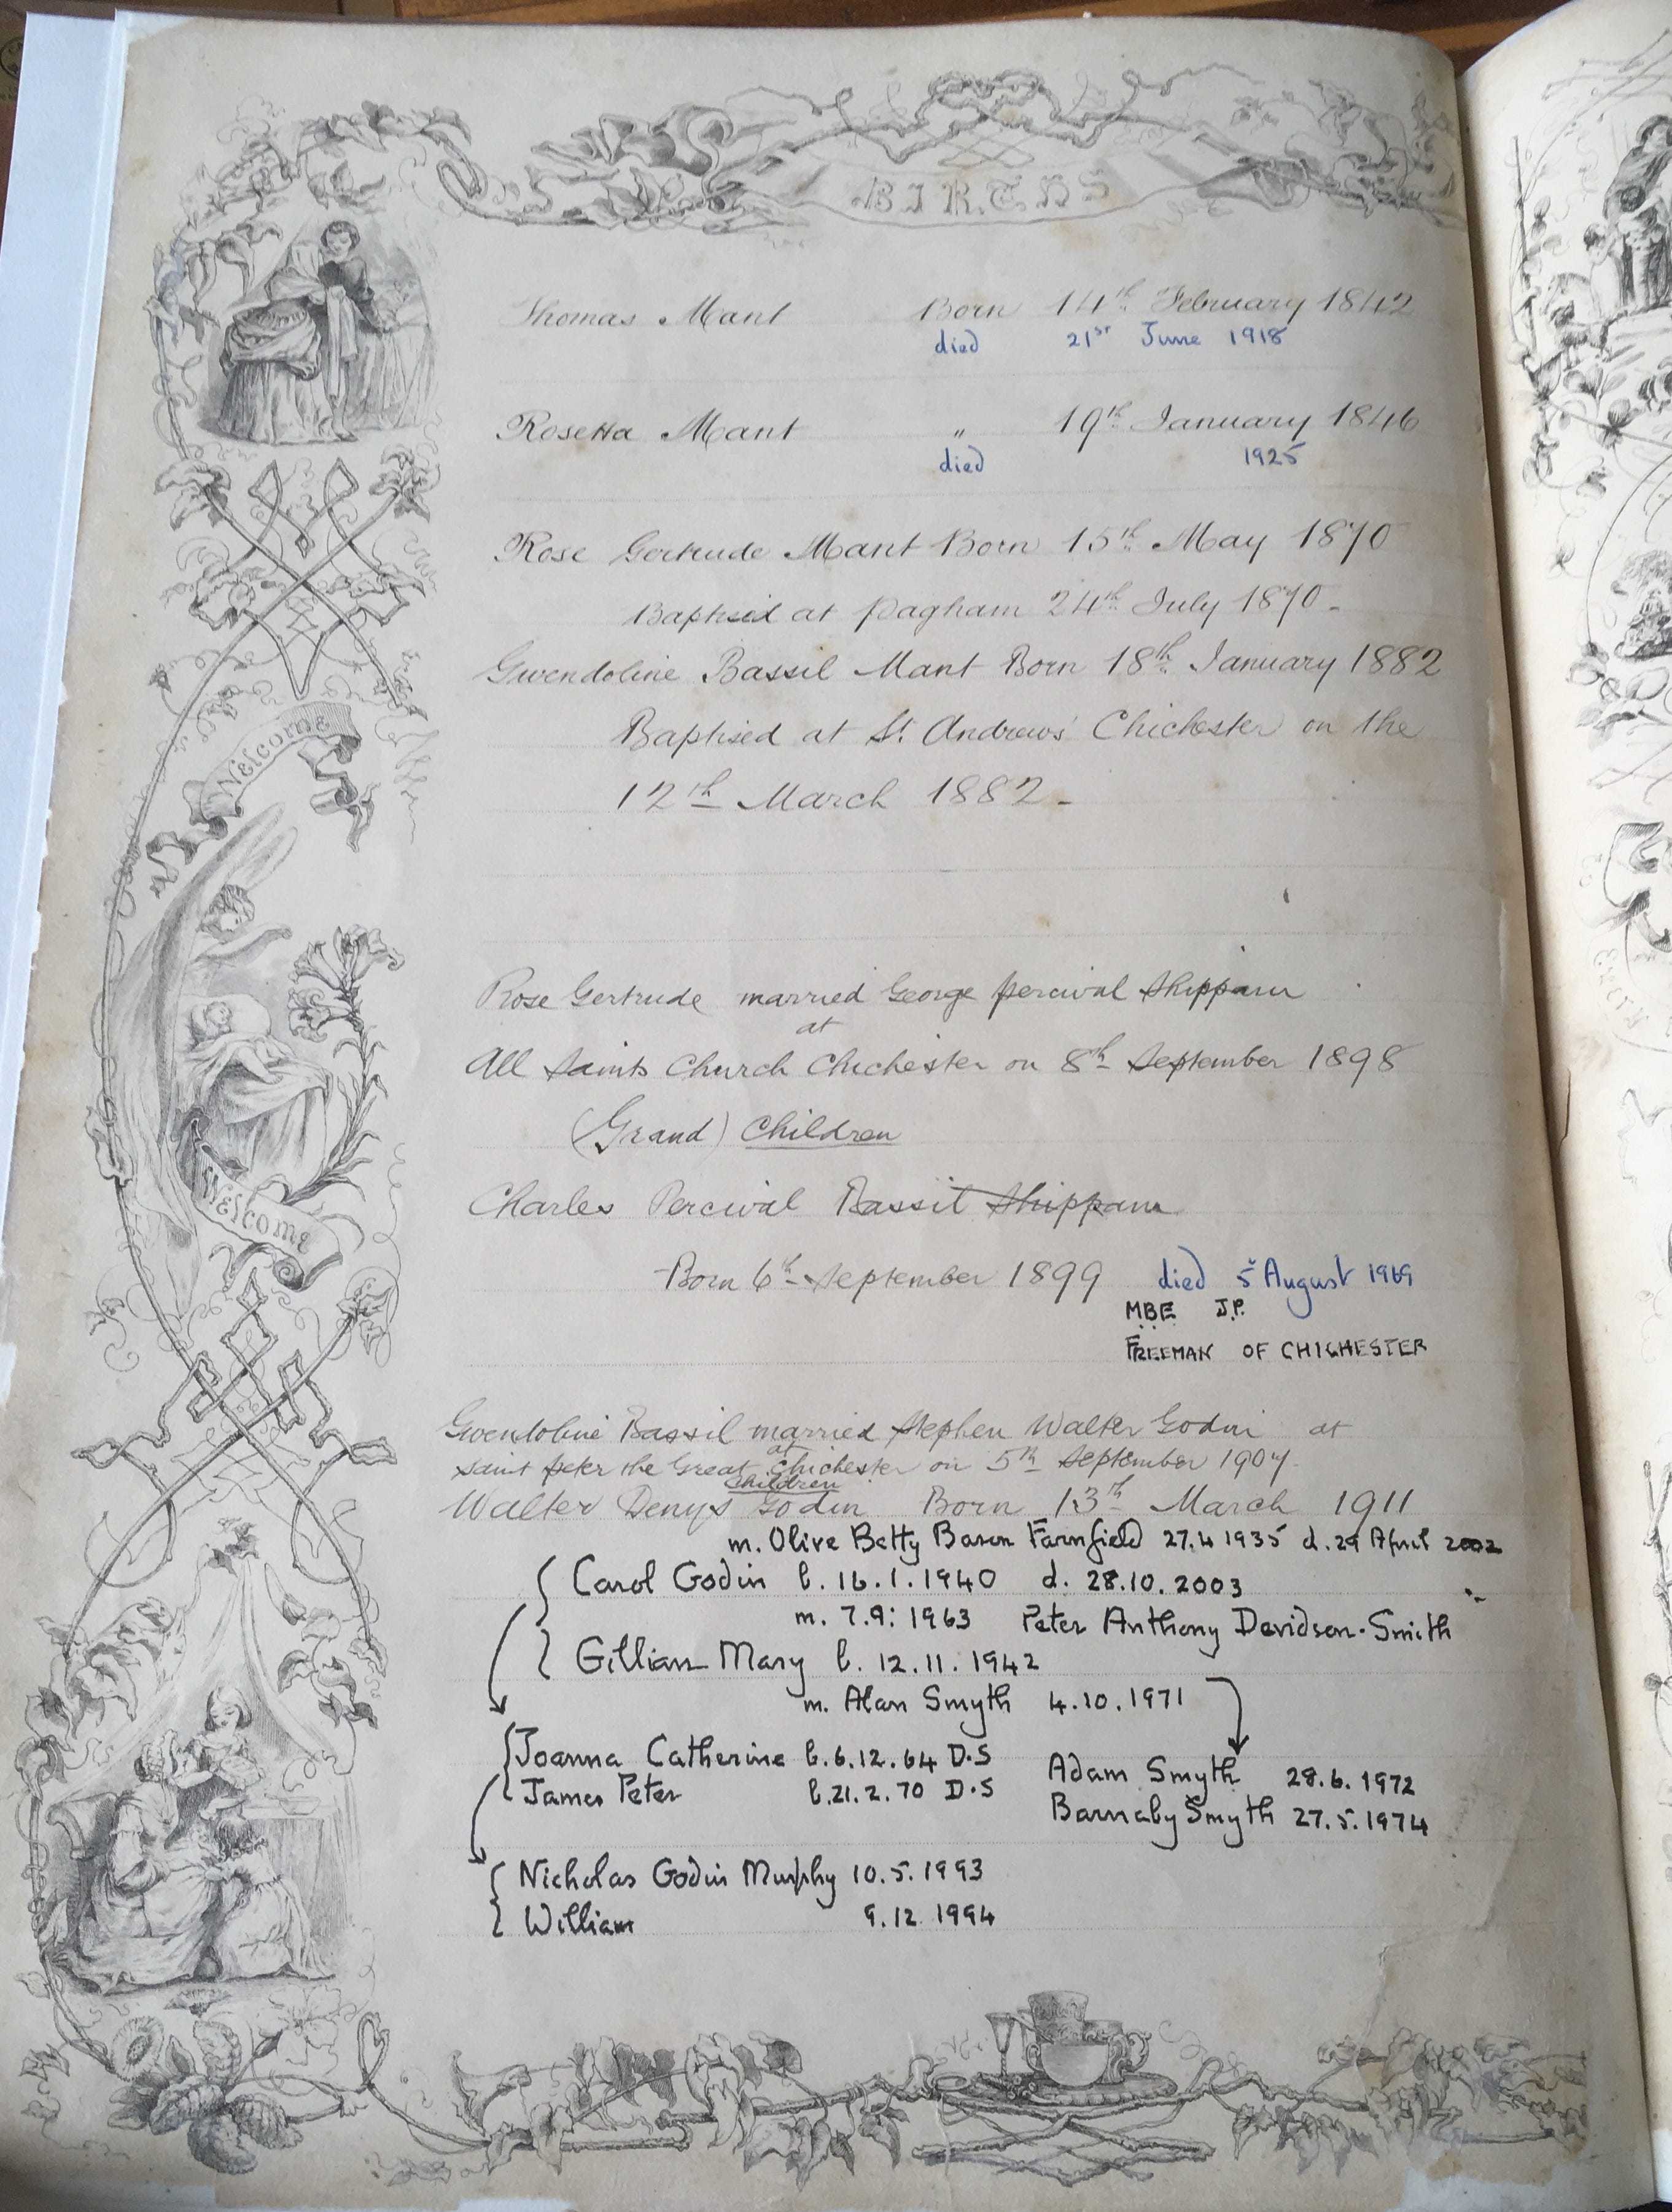 BIRTHS
Thomas Mant Born 14th February 1842
died 21st June 1918
Rosetta Mant " 19th January 1846
died 1925
Rose Gertrude Mant Born 15th May 1870
Baptised at Pagham 24th July 1870-
Gwendoline Bassil Mant Born 18th January 1882
Baptised at St. Andrews' Chichester on the
12th March 1882-
Welcome
Rose Gertrude married George Percival Shippam
at
All Saints Church Chichester on 8th September 1898
(Grand) Children
Charles Percival Bassil Shippam
Welcome
Born 6th September 1899 died 5 August 1969
MBE J.P.
FREEMAN OF CHICHESTER
Gwendoline Bassil married Stephen Walter Godin at
Saint Peter the Great at Chichester on 5th September 1907.
Children
Walter Denys Godin Born 13th March 1911
m. Olive Betty Baron Farnfield 27.4 1935 d. 29 April 2002
Carol Godin b. 16.1.1940 d. 28.10.2003
m. 7.9:1963 Peter Anthony Davidson-Smith
Gillian Mary b. 12.11.1942
m. Alan Smyth 4.10.1971
Joanna Catherine b.6.12.64 D.S
James Peter b.21.2.70 D.S
Adam Smyth 28.6.1972
Barnaby Smyth 27.5.1974
Nicholas Godin Murphy 10.5.1993
William 9.12 1994